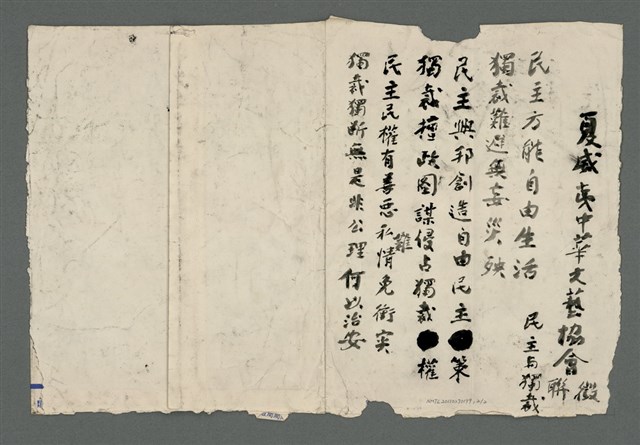 夏威夷中華文藝協會徵聯
民主与獨裁
民主方能自由生活
獨裁難避無妄災殃
民主興邦創造自由民主策
獨裁擅政圖謀侵占獨裁權
民主民權有善惡私情難免衝突
獨裁獨断無是非公理何以治安